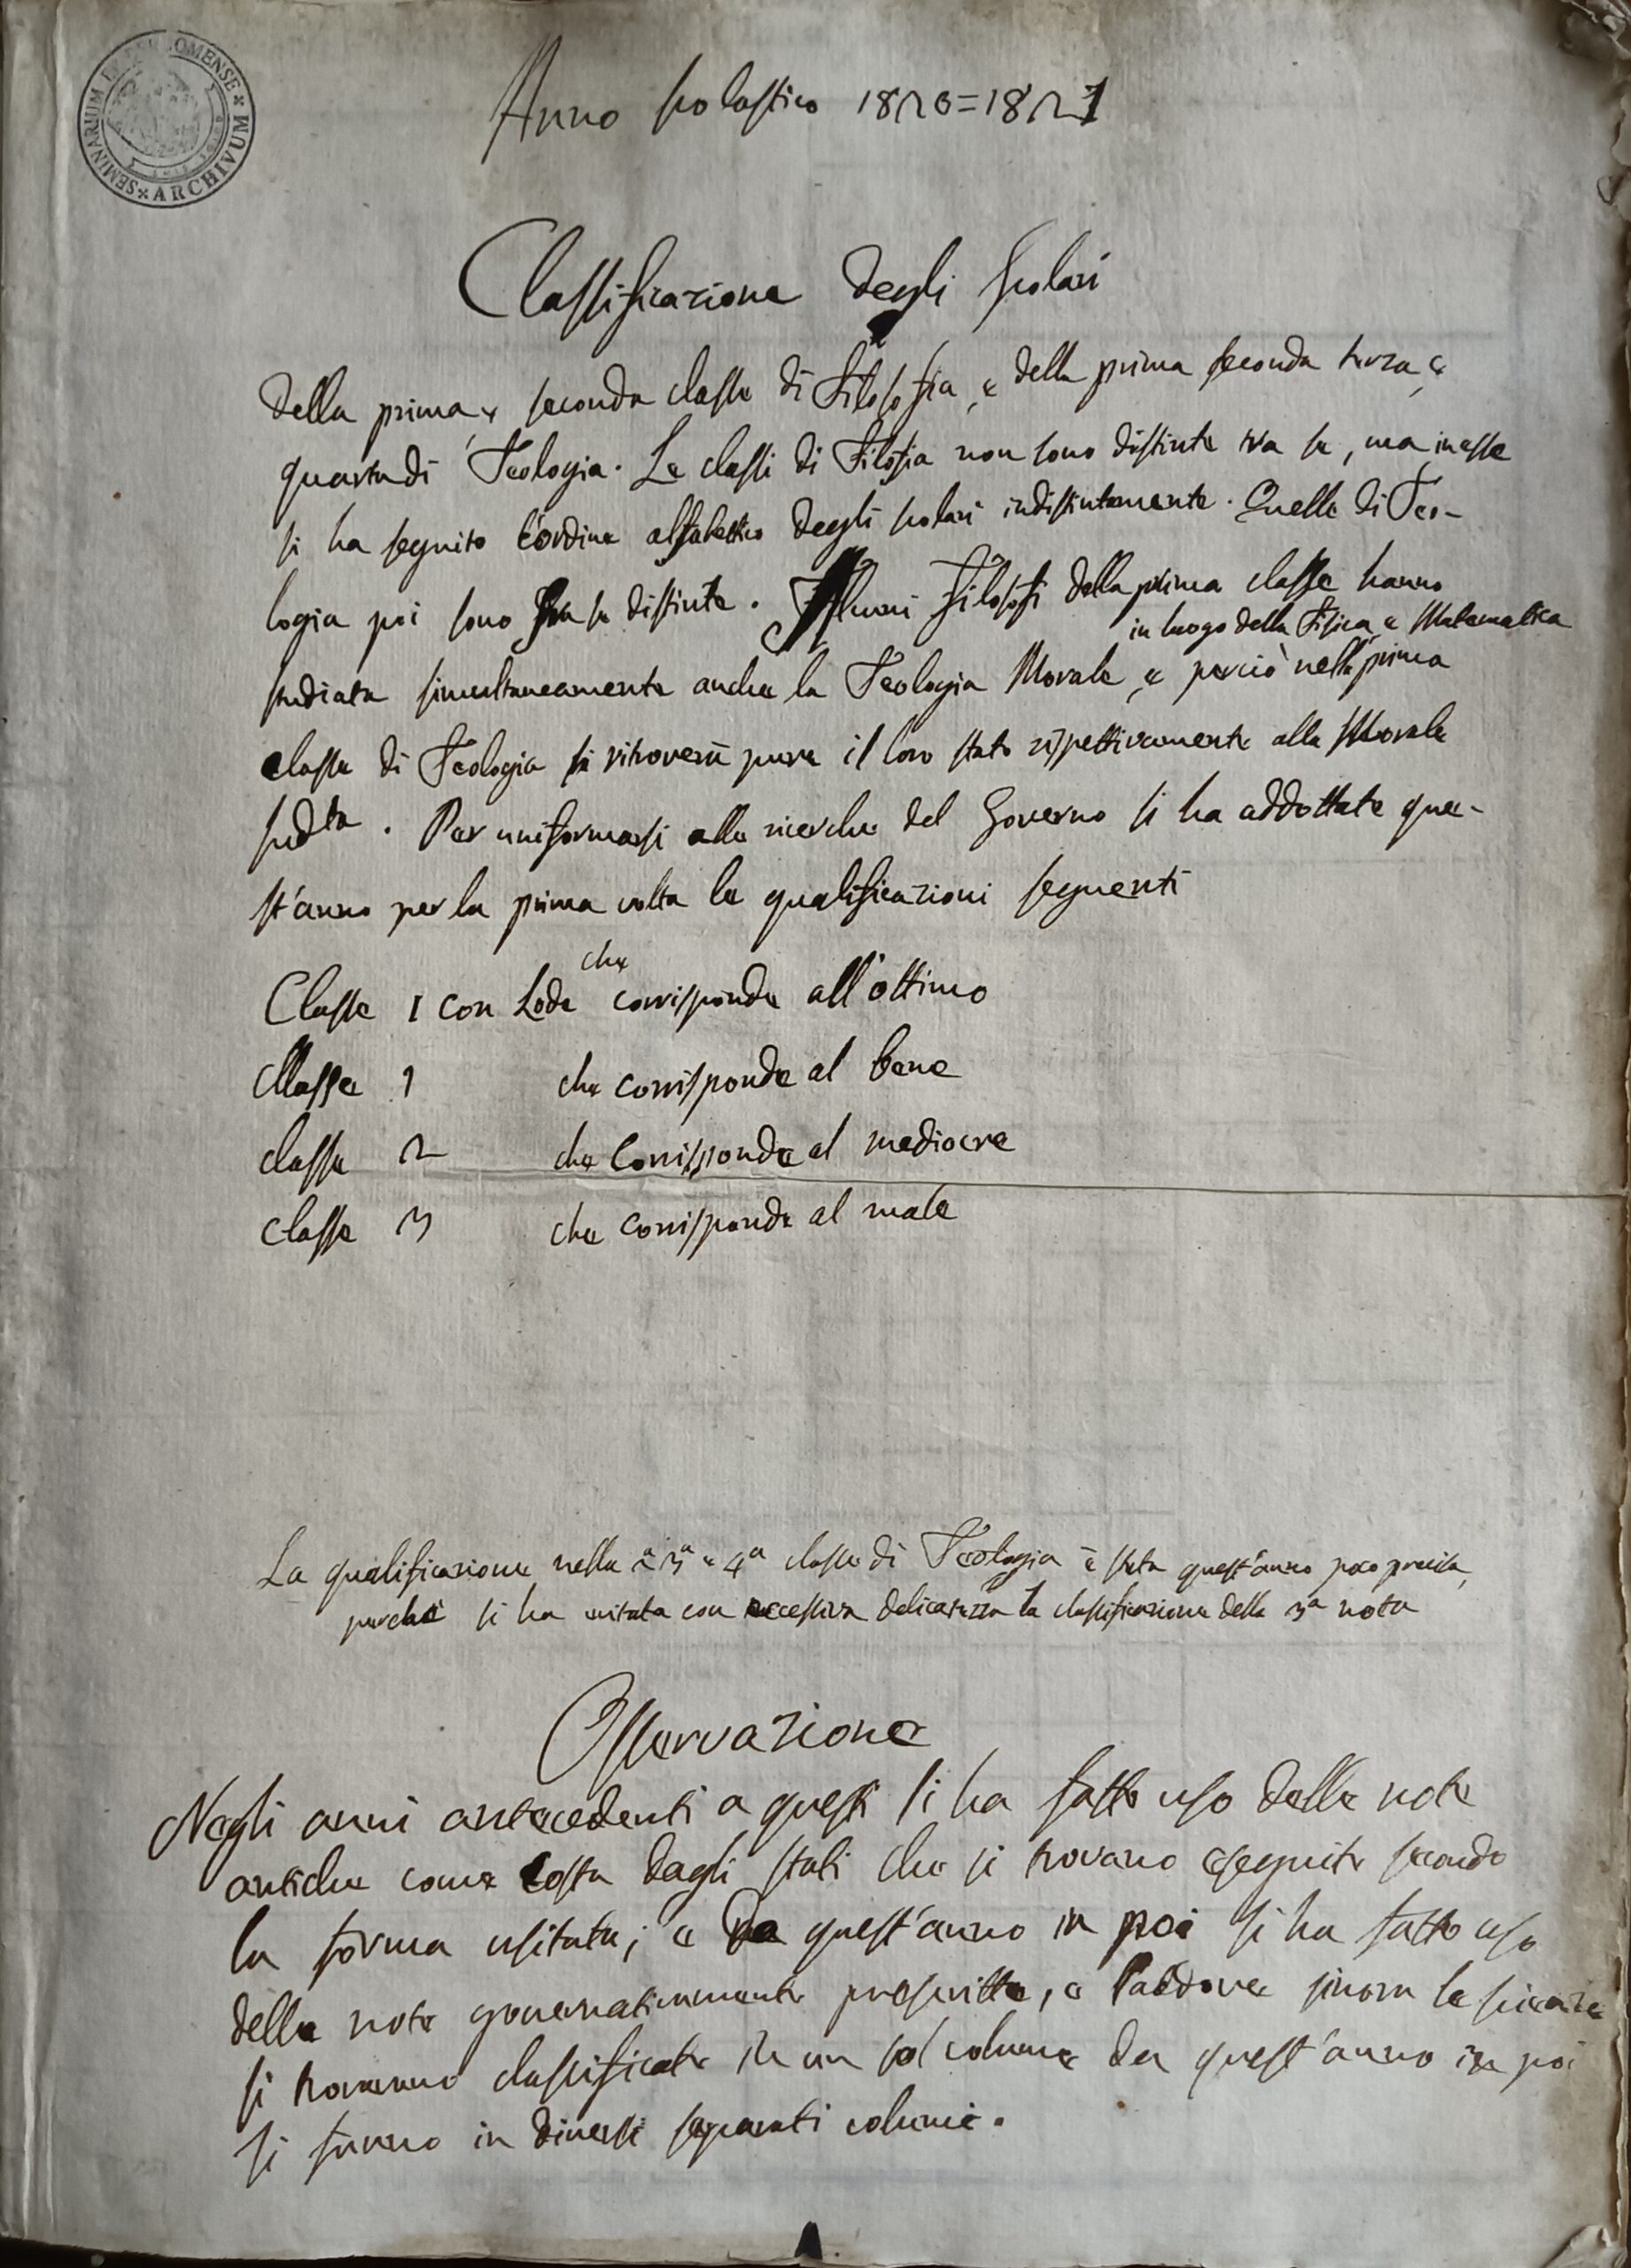 ARCHIVUM SEMINARIUM OMENSE
Anno scolastico 1820=1821
Classificazione degli scolari
Della prima, e seconda classe di Filosofia, e della prima seconda terza, e
quarta di Teologia. Le classi di Filosfia non sono distinte tra se, ma in esse
si ha seguito l'ordine alfabettico degli scolari indistintamente. Quelle di Teo-
logia poi sono fra se distinte. Alcuni Filosofi della prima classe hanno
in luogo della Fisica, e Matematica
studiata simultaneamente anche la Teologia Morale, e perciò nella prima
classe di Teologia si ritroverà pure il loro stato rispettivamente alla Morale
sudta. Per uniformarsi alle ricerche del Governo si ha addottate que-
st'anno per la prima volta le qualificazioni seguenti
che
Classe 1 con Lode corrisponde all'ottimo
Classe 1 che corrisponde al bene
classe 2 che corrisponde al mediocre
classe 3 che corrisponde al male
La qualificazione nella 2a 3a e 4a classe di Teologia è stata quest'anno poco precisa,
perchè si ha evitata con eccessiva delicatezza la classificazione della 3a nota
Osservazione
Negli anni antecedenti a questi si ha fatto uso delle note
antiche come costa dagli stati che si trovano eseguite secondo
la forma usitata; e Da quest'anno in poi si ha fatto uso
delle note governativamente prescritte, e laddove sinora le scienze
si trovavano classificate in un sol volume da quest'anno in poi
si fanno in diversi separati volumi.